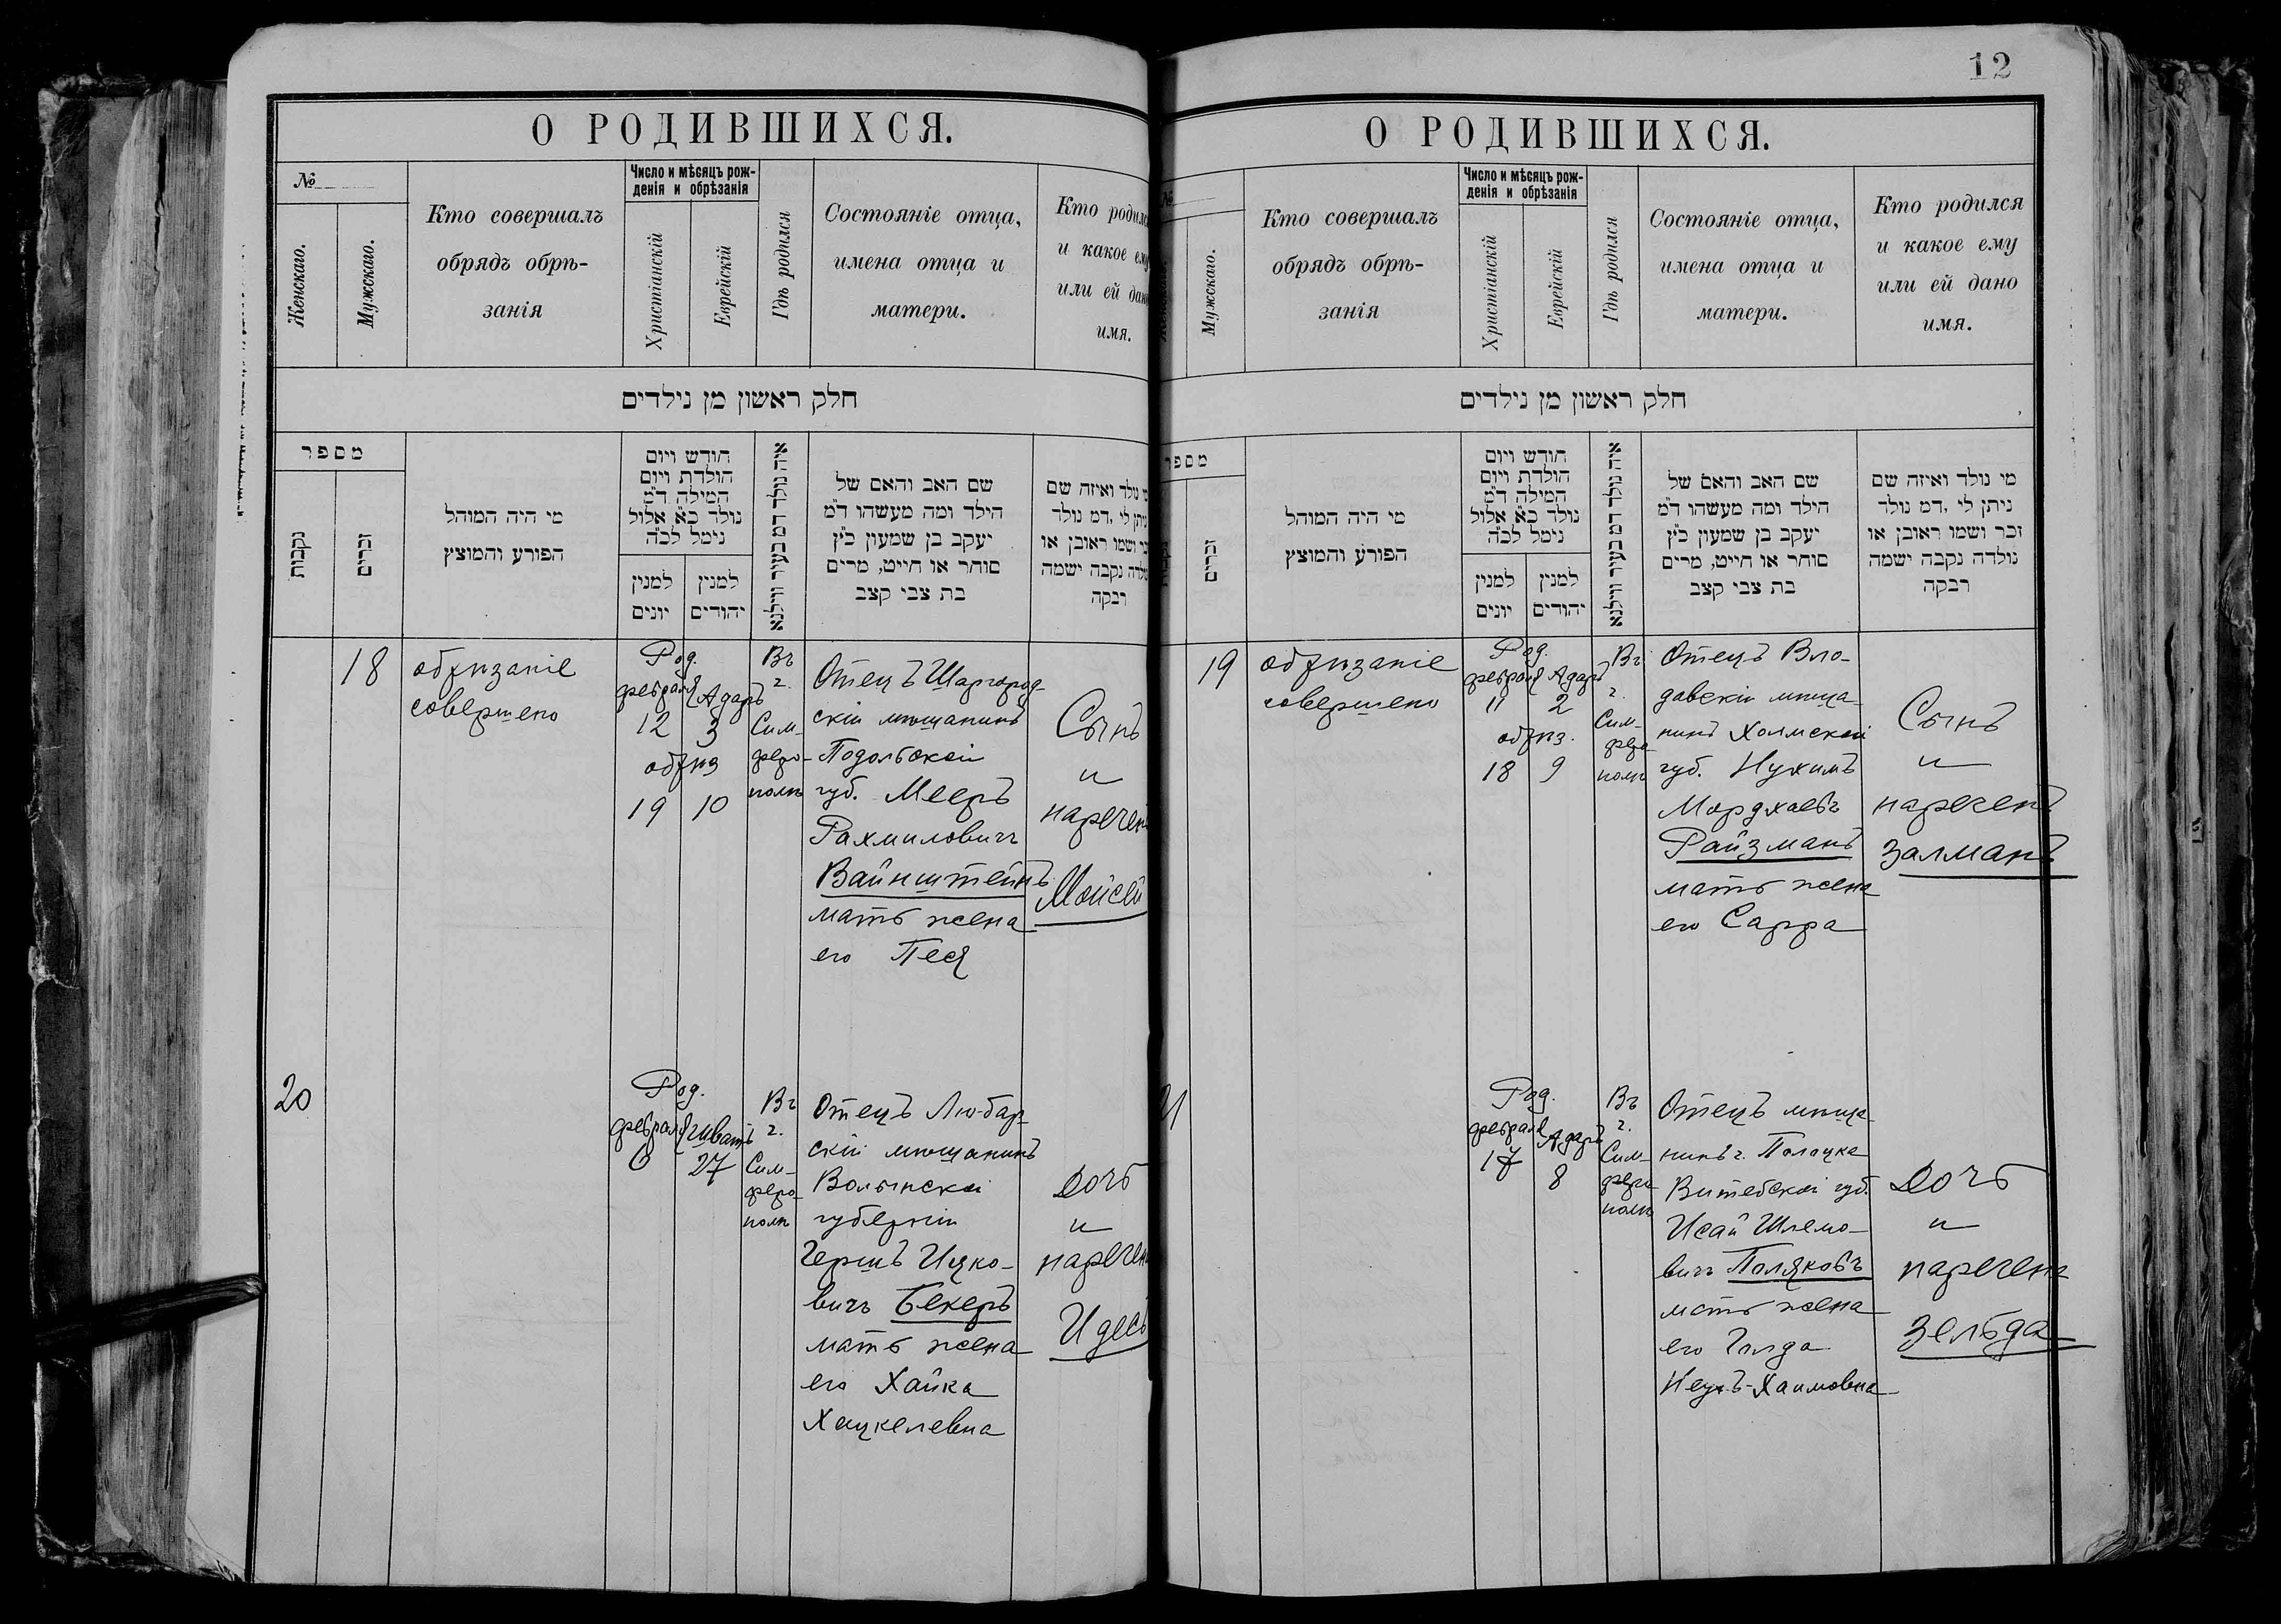 12
О РОДИВШИХСЯ.
№
Женскаго.
Мужскаго.
Кто совершалъ
обрядъ обрѣ-
занія
Число и мѣсяцъ рож-
денія и обрѣзанія
Христіанскій
Еврейскій
Гдѣ родился
Состояніе отца,
имена отца и
матери.
Кто родился
и какое ему
или ей дано
имя.
חלק ראשון מן נילדים
מספר
נקבות
זכרים
מי היה המוהל
הפורע והמוצץ
חודש ויום
הולדת ויום
המילה ד״מ
נולד כ״א אלול
נימל לכ״ה
למנין
יונים
למנין
יהודים
איה נולד דמ בעיר ווילנא
שם האב והאם של
הילד ומה מעשהו ד״מ
יעקב בן שמעון כ״ץ
סוחר או חייט, מרים
בת צבי קצב
מי נולד ואיזה שם
ניתן לי ,דמ נולד
זכר ושמו ראובן או
נולדה נקבה ישמה
רבקה
18
обрѣзаніе
совершено
Род.
февраля Адаръ
12 3
обрѣз
19 10
Въ
г.
Сим-
феро-
полѣ
Отецъ Шаргород-
скій мѣщанинъ
Подольской
губ. Мееръ
Рахмиловичъ
Вайнштейнъ
мать жена
его Песя
Сынъ
и
нареченъ
Мойсей
20
Род.
февраля Шватъ
6 27
Въ
г.
Сим-
феро-
полѣ
Отецъ Любар-
скій мѣщанинъ
Волынской
губерніи
Гершъ Ицко-
вичъ Бекеръ
мать жена
его Хайка
Хацкелевна
Дочь
и
наречена
Идесь
О РОДИВШИХСЯ.
№
Женскаго
Мужскаго.
Кто совершалъ
обрядъ обрѣ-
занія
Число и мѣсяцъ рож-
денія и обрѣзанія
Христіанскій
Еврейскій
Гдѣ родился
Состояніе отца,
имена отца и
матери.
Кто родился
и какое ему
или ей дано
имя.
חלק ראשון מן נילדים
מספר
זכרים
מי היה המוהל
הפורע והמוצץ
חודש ויום
הולדת ויום
המילה ד״מ
נולד כ״א אלול
נימל לכ״ה
למנין
יונים
למנין
יהודים
איה נולד דמ בעיר ווילנא
שם האב והאם של
הילד ומה מעשהו ד״מ
יעקב בן שמעון כ״ץ
סוחר או חייט, מרים
בת צבי קצב
מי נולד ואיזה שם
ניתן לי ,דמ נולד
זכר ושמו ראובן או
נולדה נקבה ישמה
רבקה
19
обрѣзаніе
совершено
Род.
февраля Адаръ
11 2
обрѣз.
18 9
Въ
г.
Сим-
феро-
полѣ
Отецъ Вло-
давскій мѣща-
нинъ Холмской
губ. Нухимъ
Мордхаевъ
Райзманъ
мать жена
его Сарра
Сынъ
и
нареченъ
Залманъ
21
Род.
февраля Адаръ
17 8
Въ
г.
Сим-
феро-
полѣ
Отецъ мѣща-
нинъ г. Полоцка
Витебской губ.
Исай Шлемо-
вичъ Поляковъ
мать жена
его Голда
Хаимовна
Дочь
и
наречена
Зельда